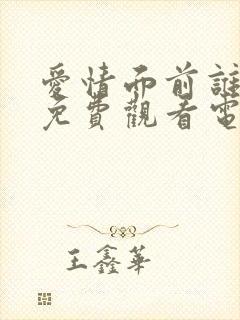 愛情面前誰
免費觀看電
王鑫華